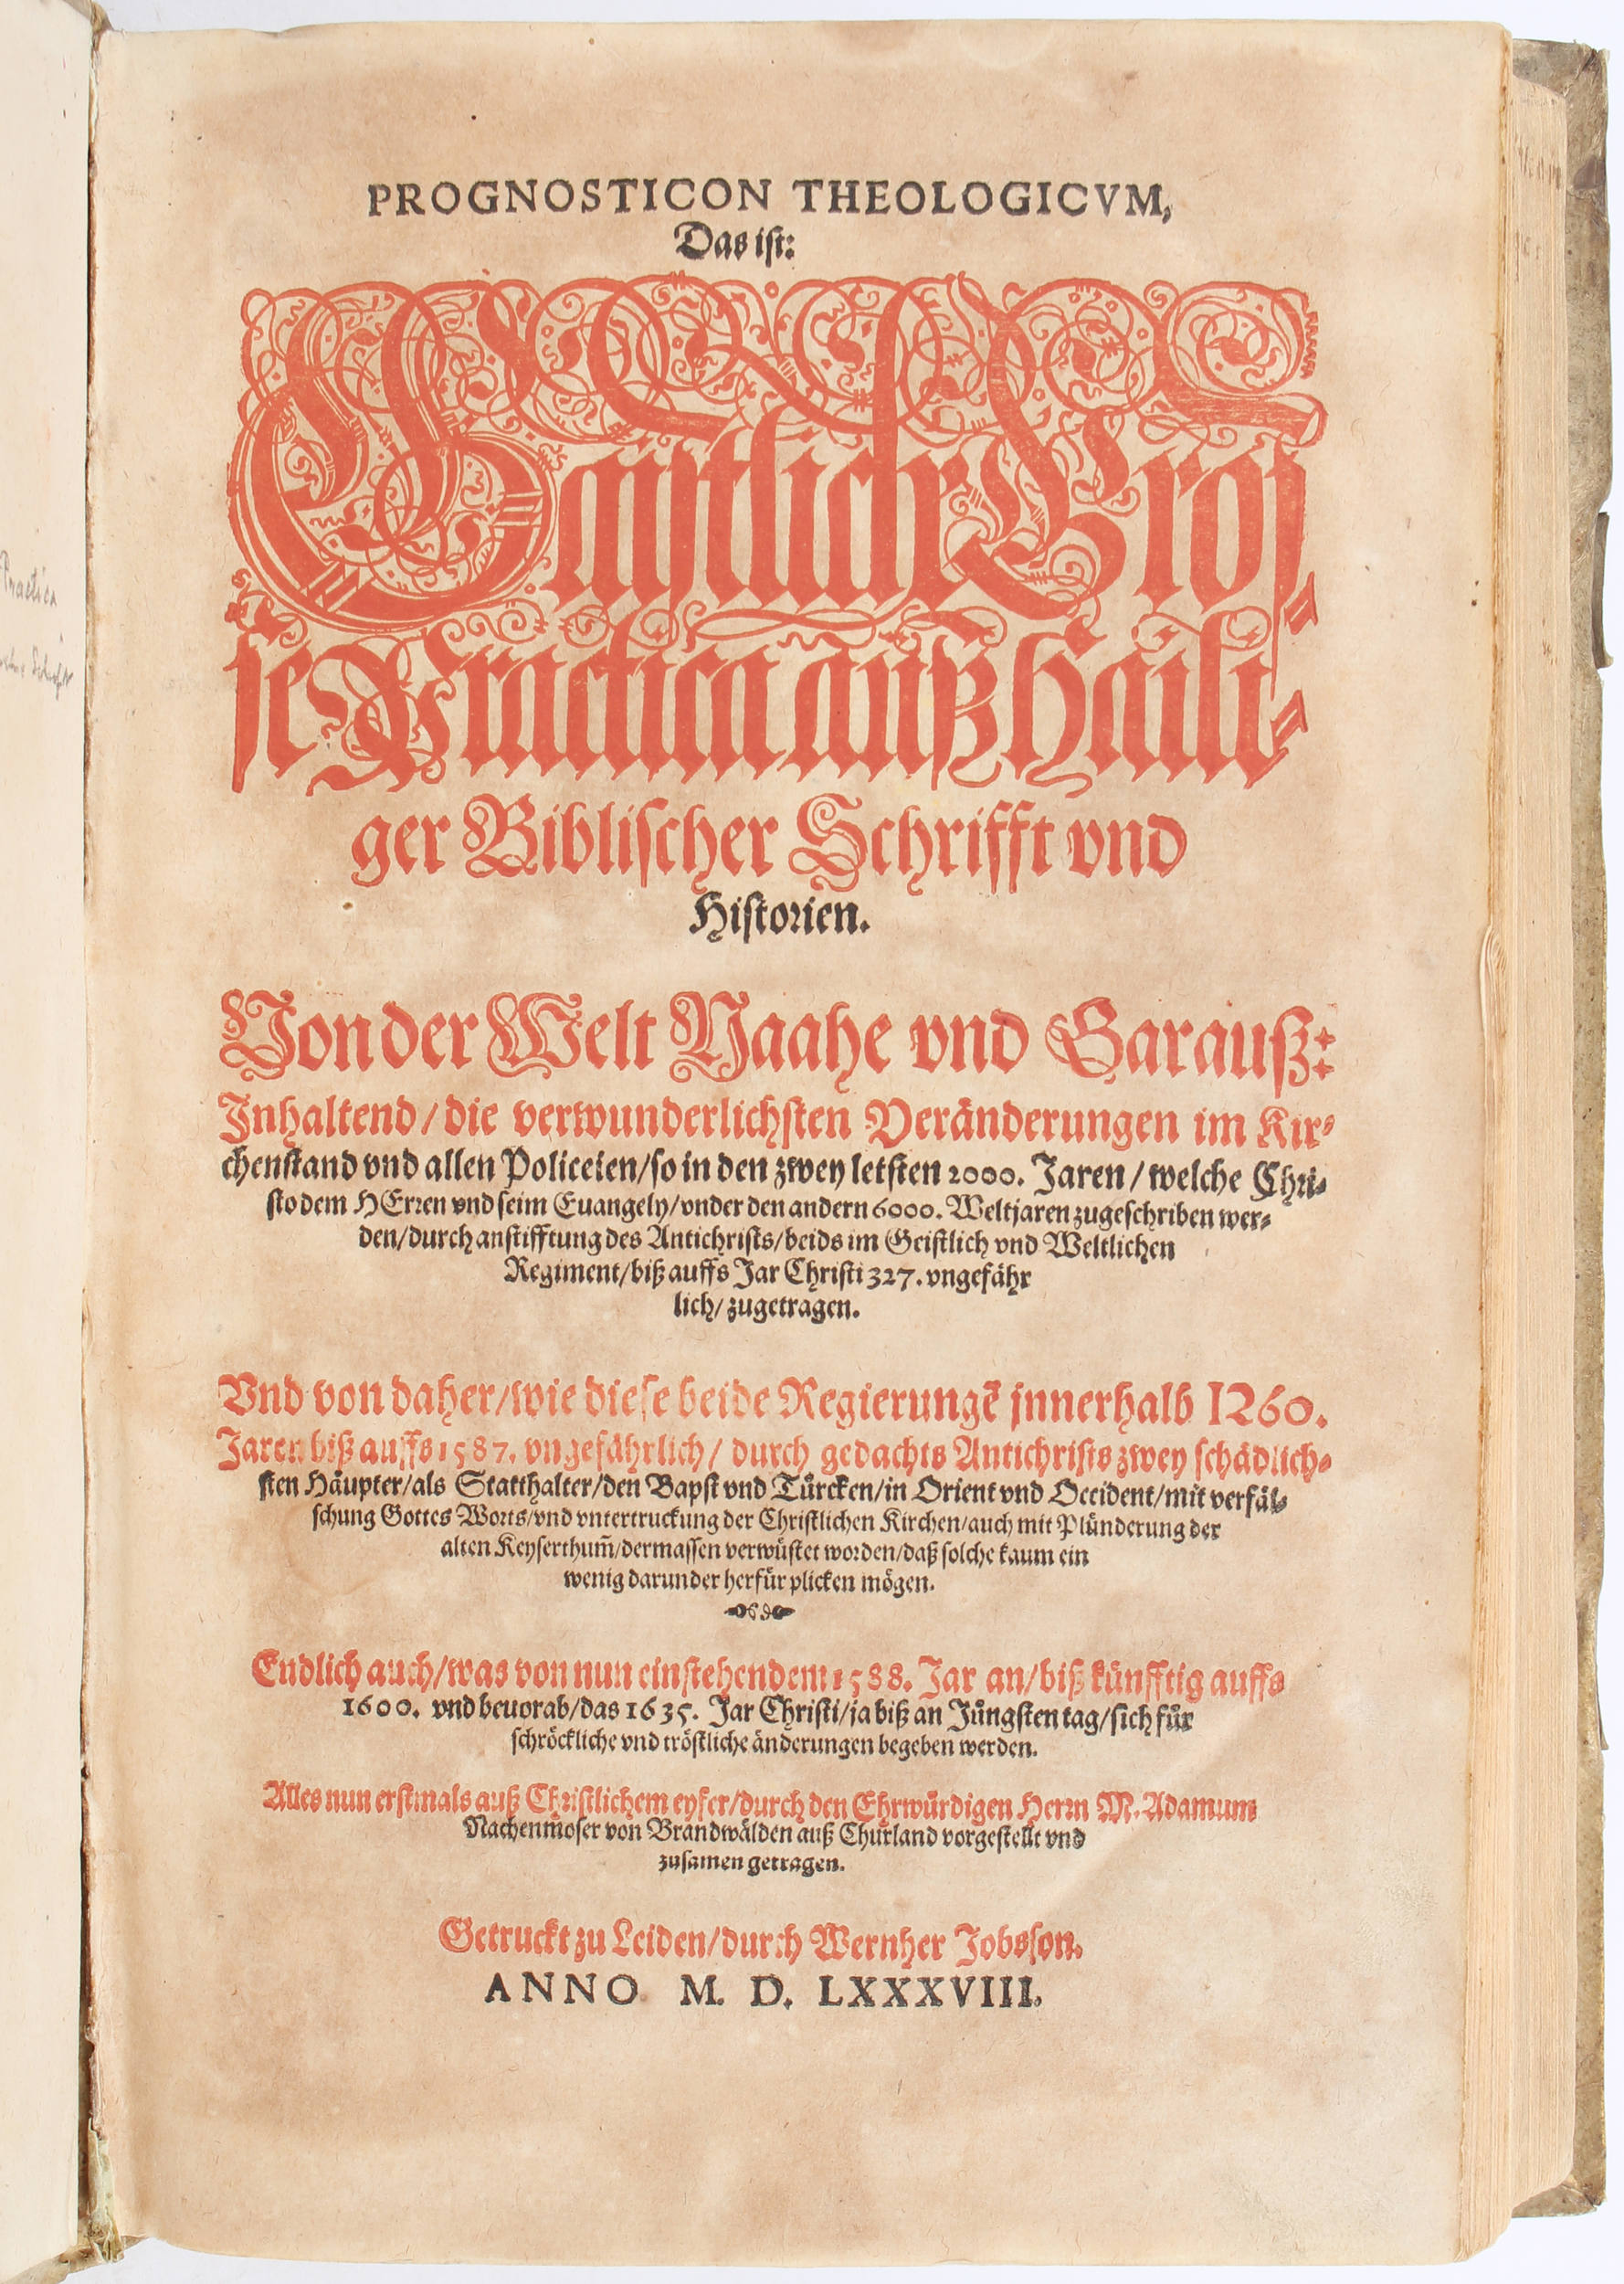 PROGNOSTICON THEOLOGICVM,
Das ist:
Gaistlich Gros⸗
se Practica auß Haili⸗
ger Biblischer Schrifft vnd
Historien.
Von der Welt Naahe vnd Garauß:
Inhaltend/die verwunderlichsten Veränderungen im Kir⸗
chenstand vnd allen Policeien/so in den zwey letsten 2000. Jaren/welche Chri⸗
sto dem HErren vnd seim Euangely/vnder den andern 6000. Weltjaren zugeschriben wer⸗
den/durch anstifftung des Antichrists/beids im Geistlich vnd Weltlichen
Regiment/biß auffs Jar Christi 327. vngefähr
lich/zugetragen.
Vnd von daher/wie diese beide Regierungẽ jnnerhalb 1260.
Jaren biß auffs 1587. vngefährlich/durch gedachts Antichrists zwey schädlich⸗
sten Häupter/als Statthalter/den Bapst vnd Türcken/in Orient vnd Occident/mit verfäl⸗
schung Gottes Worts/vnd vntertruckung der Christlichen Kirchen/auch mit Plünderung der
alten Keyserthum̃/dermassen verwüstet worden/daß solche kaum ein
wenig darunder herfür plicken mögen.
Endlich auch/was von nun einstehendem 1588. Jar an/biß künfftig auffs
1600. vnd beuorab/das 1635. Jar Christi/ja biß an Jüngsten tag/sich für
schröckliche vnd tröstliche änderungen begeben werden.
Alles nun erstmals auß Christlichem eyfer/durch den Ehrwürdigen Herrn M. Adamum
Nachenmoser von Brandwälden auß Churland vorgestellt vnd
zusamen getragen.
Getruckt zu Leiden/durch Wernher Jobsson.
ANNO M. D. LXXXVIII.